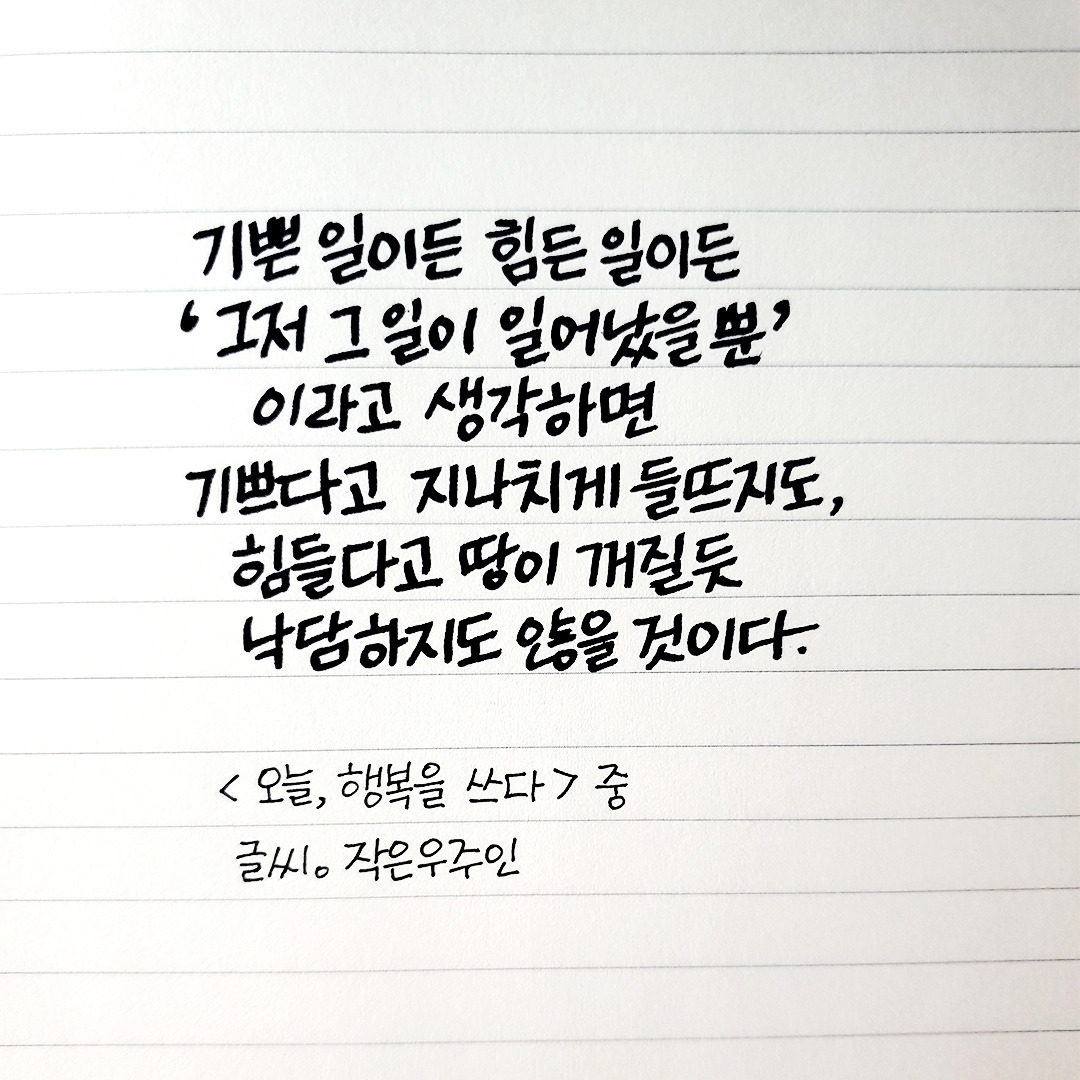 기쁜 일이든 힘든 일이든
‘그저 그 일이 일어났을 뿐’
이라고 생각하면
기쁘다고 지나치게 들뜨지도,
힘들다고 땅이 꺼질듯
낙담하지도 않을 것이다.
<오늘, 행복을 쓰다> 중
글씨。작은우주인